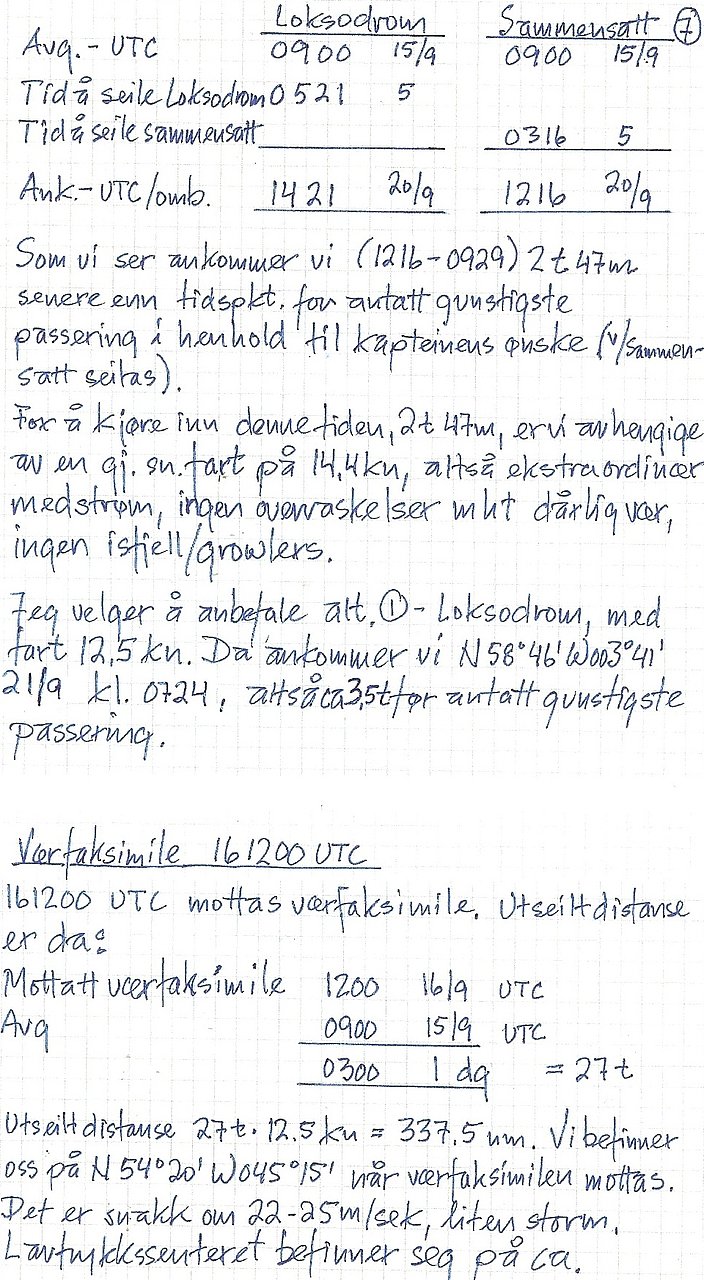 Loksodrom Sammensatt 7
Avg.- UTC 0900 15/9 0900 15/9
Tid å seile Loksodrom 0521 5
Tid å seile sammensatt 0316 5
Ank.- UTC/omb. 1421 20/9 1216 20/9
Som vi ser ankommer vi (1216-0929) 2t 47m
senere enn tidspkt. for antatt gunstigste
passering i henhold til kapteinens ønske (v/sammen-
satt seilas).
For å kjøre inn denne tiden, 2t 47m, er vi avhengige
av en gj. sn. fart på 14,4 kn, altså ekstraordinær
medstrøm, ingen overraskelser mht dårlig vær,
ingen isfjell/growlers.
Jeg velger å anbefale alt. ① - Loksodrom, med
fart 12,5 kn. Da ankommer vi N 58°46' W003°41'
21/9 kl. 0724, altså ca 3,5t før antatt gunstigste
passering.
Værfaksimile 161200 UTC
161200 UTC mottas værfaksimile. Utseilt distanse
er da:
Mottatt værfaksimile 1200 16/9 UTC
Avg 0900 15/9 UTC
0300 1 dg = 27t
Utseilt distanse 27t · 12.5 kn = 337.5 nm. Vi befinner
oss på N 54°20' W045°15' når værfaksimilen mottas.
Det er snakk om 22-25m/sek, liten storm.
Lavtrykkssenteret befinner seg på ca.